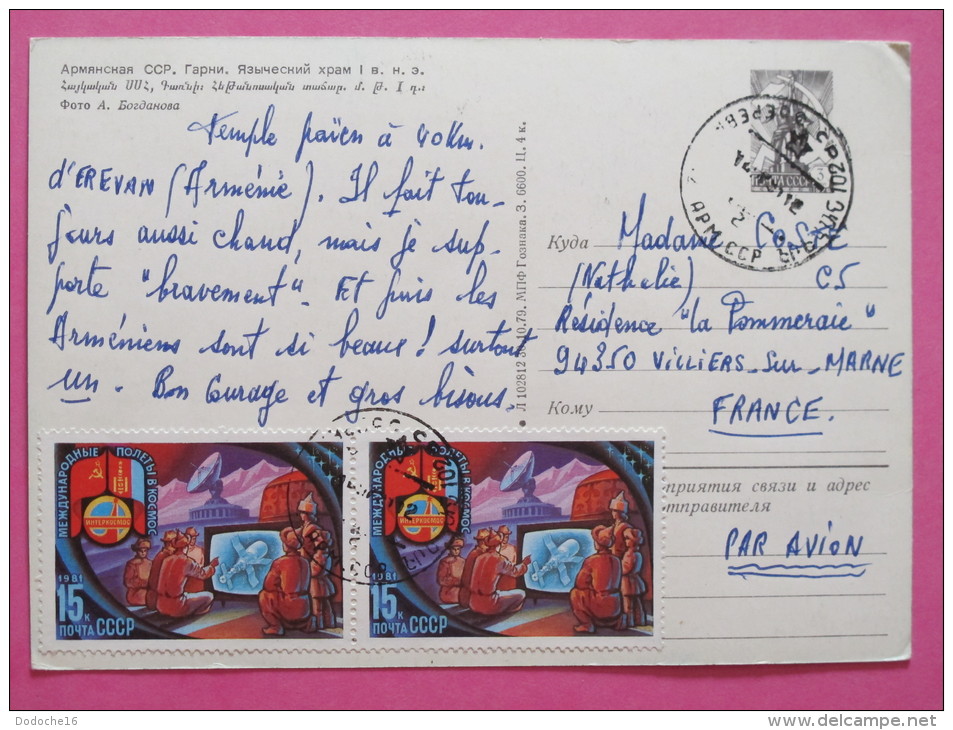 Армянская ССР. Гарни. Языческий храм I в. н. э.
Հայկական ՍՍՀ, Գառնի։ Հեթանոսական տաճար. մ. թ. I դ.։
Фото А. Богданова
Temple païen à 40 Km.
d'EREVAN (Arménie). Il fait tou-
jours aussi chaud, mais je sup-
porte "bravement". Et puis les
Arméniens sont si beaux! surtout
un. Bon Courage et gros bisous.
Л 102812 30.10.79. МПФ Гознака. З. 6600. Ц. 4 к.
ПОЧТА СССР
АРМ.ССР
Куда
Madame
(Nathalie) C5
Résidence "la Pommeraie"
94350 VILLIERS-sur-MARNE
Кому
FRANCE.
приятия связи и адрес
тправителя
PAR AVION
МЕЖДУНАРОДНЫЕ ПОЛЕТЫ В КОСМОС
ИНТЕРКОСМОС
1981
15к
ПОЧТА СССР
МЕЖДУНАРОДНЫЕ ПОЛЕТЫ В КОСМОС
ИНТЕРКОСМОС
1981
15к
ПОЧТА СССР
Dodoche16
delcampe.net